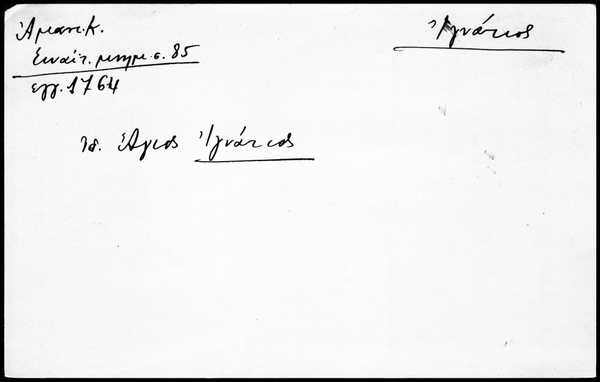 Ἀμαντ. Κ.
Σιναϊτ. μνημ. σ. 85
ἐγγ. 1764
Ἰγνάτιος
Ἅγιος Ἰγνάτιος